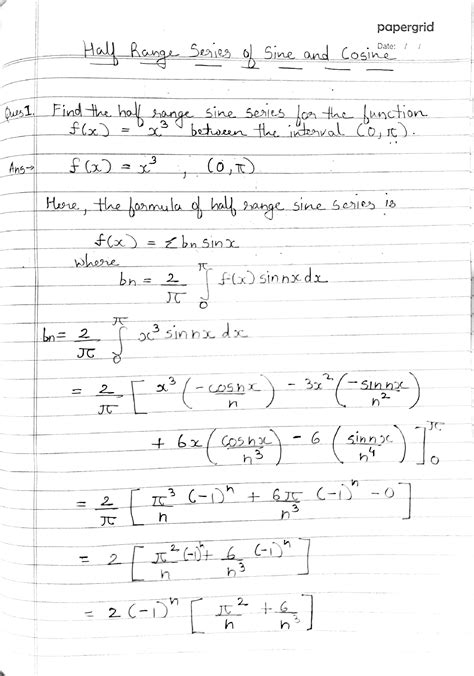 papergrid
Date: / /
Half Range Series of Sine and Cosine
Ques1. Find the half range sine series for the function
f(x) = x³ between the interval (0, π).
Ans→ f(x) = x³ , (0, π)
Here, the formula of half range sine series is
f(x) = Σ bn sin x
where
bn = 2/π ∫₀^π f(x) sin nx dx
bn = 2/π ∫₀^π x³ sin nx dx
= 2/π [ x³ (-cos nx / n) - 3x² (-sin nx / n²)
+ 6x (cos nx / n³) - 6 (sin nx / n⁴) ]₀^π
= 2/π [ π³/n (-1)ⁿ + 6π/n³ (-1)ⁿ - 0 ]
= 2 [ π²/n (-1)ⁿ + 6/n³ (-1)ⁿ ]
= 2 (-1)ⁿ [ π²/n + 6/n³ ]